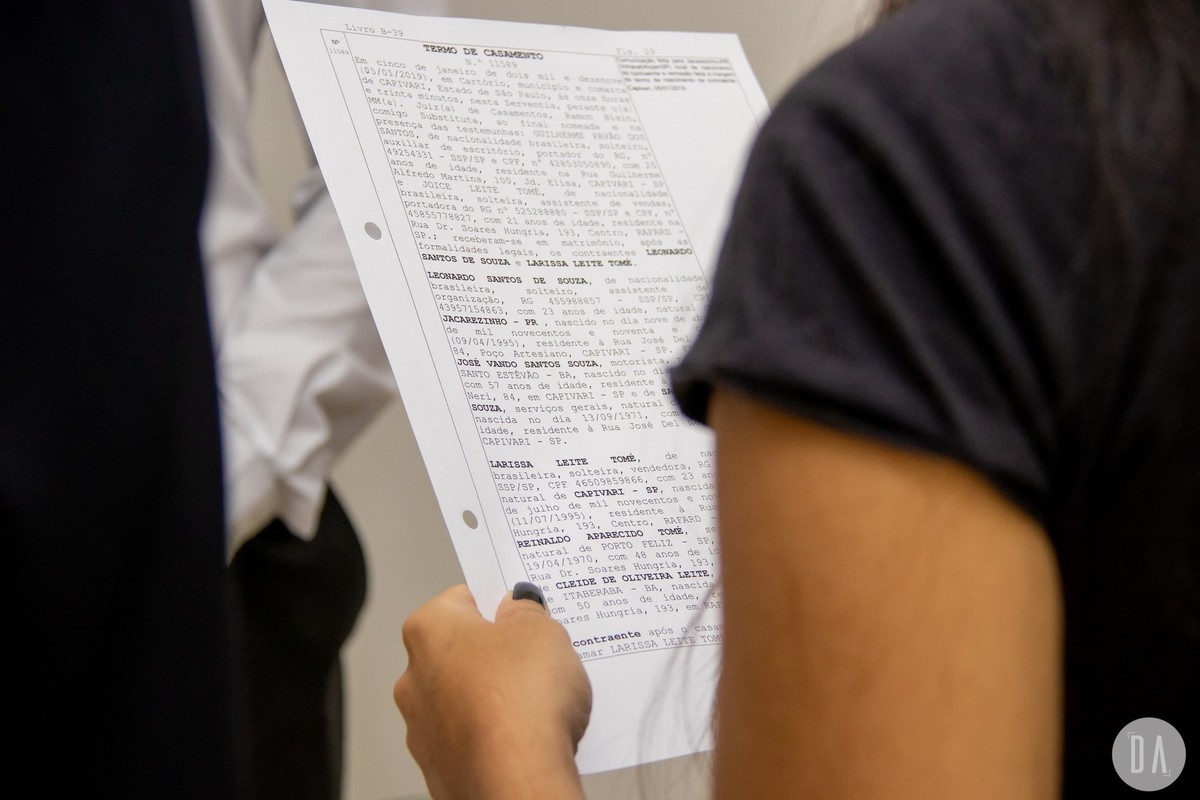 Livro B-39
Fls. 29
Nº
11589
TERMO DE CASAMENTO
N.º 11589
Em cinco de janeiro de dois mil e dezenove
(05/01/2019), em Cartório, município e comarca
de CAPIVARI, Estado de São Paulo, às onze horas
e trinta minutos, nesta Serventia, perante o(a)
MM(a). Juiz(a) de Casamentos, Ramon Bisin,
comigo Substituta, ao final nomeada e na
presença das testemunhas: GUILHERME PAVÃO DOS
SANTOS, de nacionalidade brasileira, solteiro,
auxiliar de escritório, portador do RG, nº
49254331 - SSP/SP e CPF, nº 42853050890, com 25
anos de idade, residente na Rua Guilherme
Alfredo Martins, 100, Jd. Elisa, CAPIVARI - SP
e JOICE LEITE TOMÉ, de nacionalidade
brasileira, solteira, assistente de vendas,
portadora do RG nº 525288880 - SSP/SP e CPF, nº
45855778827, com 21 anos de idade, residente na
Rua Dr. Soares Hungria, 193, Centro, RAFARD -
SP.; receberam-se em matrimônio, após as
formalidades legais, os contraentes LEONARDO
SANTOS DE SOUZA e LARISSA LEITE TOMÉ.
LEONARDO SANTOS DE SOUZA, de nacionalidade
brasileira, solteiro, assistente de
organização, RG 455988857 - SSP/SP, CPF
43957154863, com 23 anos de idade, natural
JACAREZINHO - PR , nascido no dia nove de
de mil novecentos e noventa e
(09/04/1995), residente à Rua José Del
84, Poço Artesiano, CAPIVARI - SP.
JOSÉ VANDO SANTOS SOUZA, motorista,
SANTO ESTÊVÃO - BA, nascido no
com 57 anos de idade, residente à
Neri, 84, em CAPIVARI - SP e de
SOUZA, serviços gerais, natural
nascida no dia 13/09/1971, com
idade, residente à Rua José Del
CAPIVARI - SP.
LARISSA LEITE TOMÉ, de
brasileira, solteira, vendedora, RG
SSP/SP, CPF 46509859866, com 23
natural de CAPIVARI - SP, nascida
de julho de mil novecentos e
(11/07/1995), residente à
Hungria, 193, Centro, RAFARD -
REINALDO APARECIDO TOMÉ,
natural de PORTO FELIZ - SP,
19/04/1970, com 48 anos de
Rua Dr. Soares Hungria, 193,
CLEIDE DE OLIVEIRA LEITE,
ITABERABA - BA, nascida
50 anos de idade,
Hungria, 193, em
contraente após o
LARISSA LEITE TOMÉ
DA